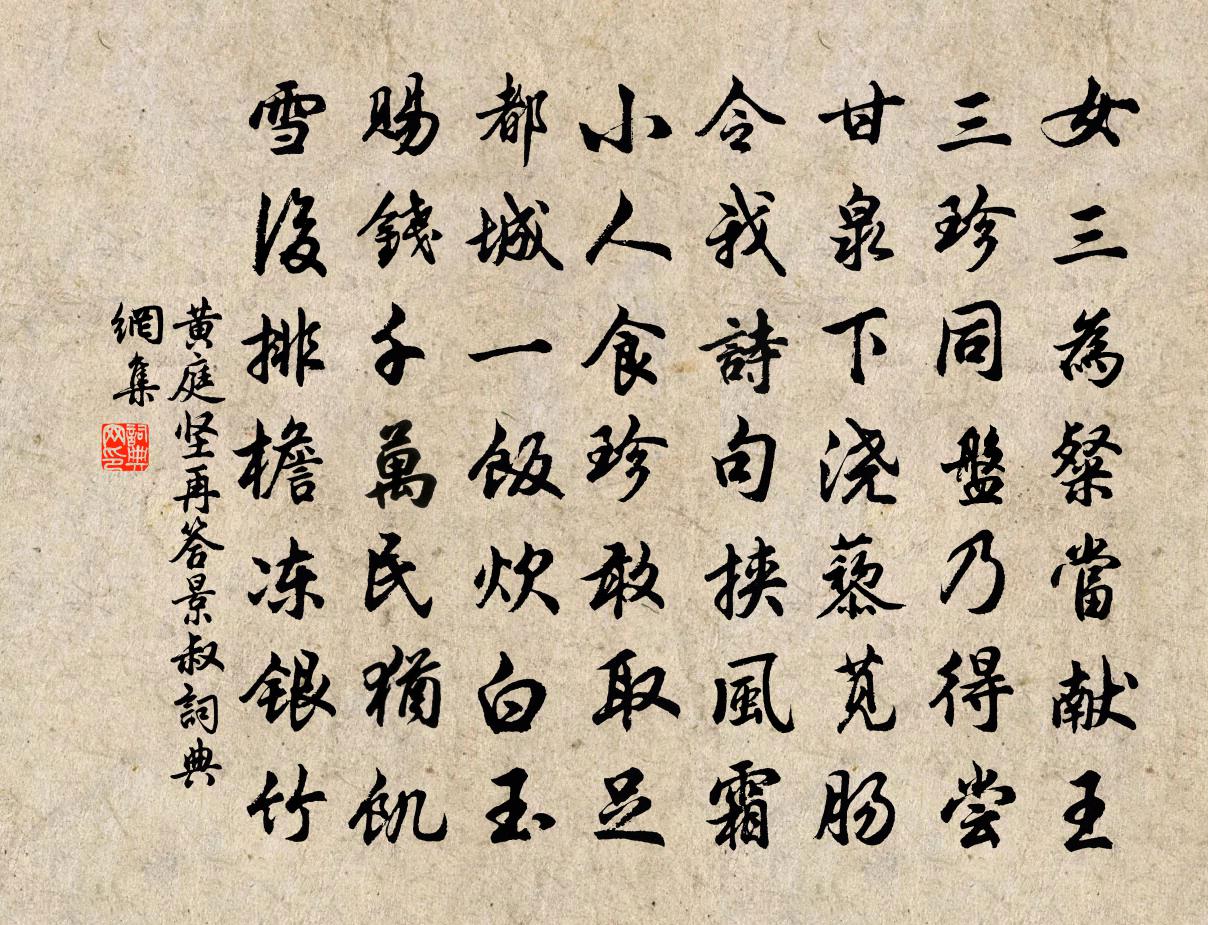 女三為粲當献王
三珍同盤乃得尝
甘泉下浇藜苋肠
令我詩句挟風霜
小人食珍敢取足
都城一飯炊白玉
賜錢千萬民猶飢
雪後排檐冻銀竹
黄庭坚再答景叔詞典
網集
詞典網印